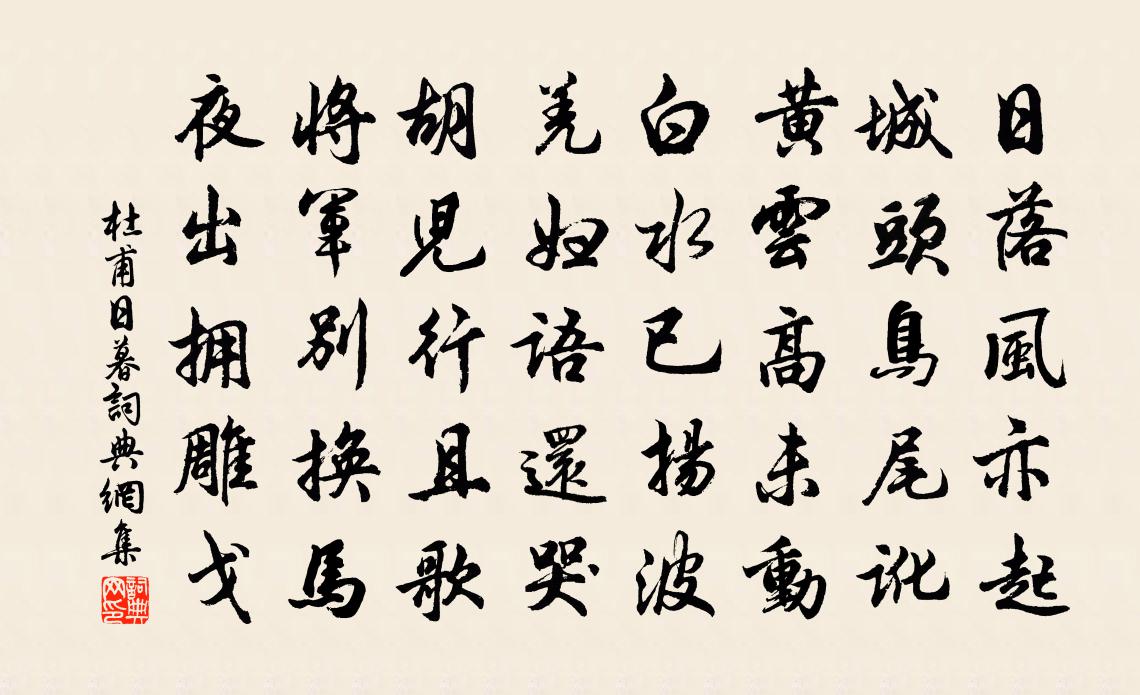 日落風亦起
城頭鳥尾訛
黄雲高未動
白水已揚波
羌婦語還哭
胡兒行且歌
將軍別換馬
夜出拥雕戈
杜甫日暮詞典網集
詞典网印